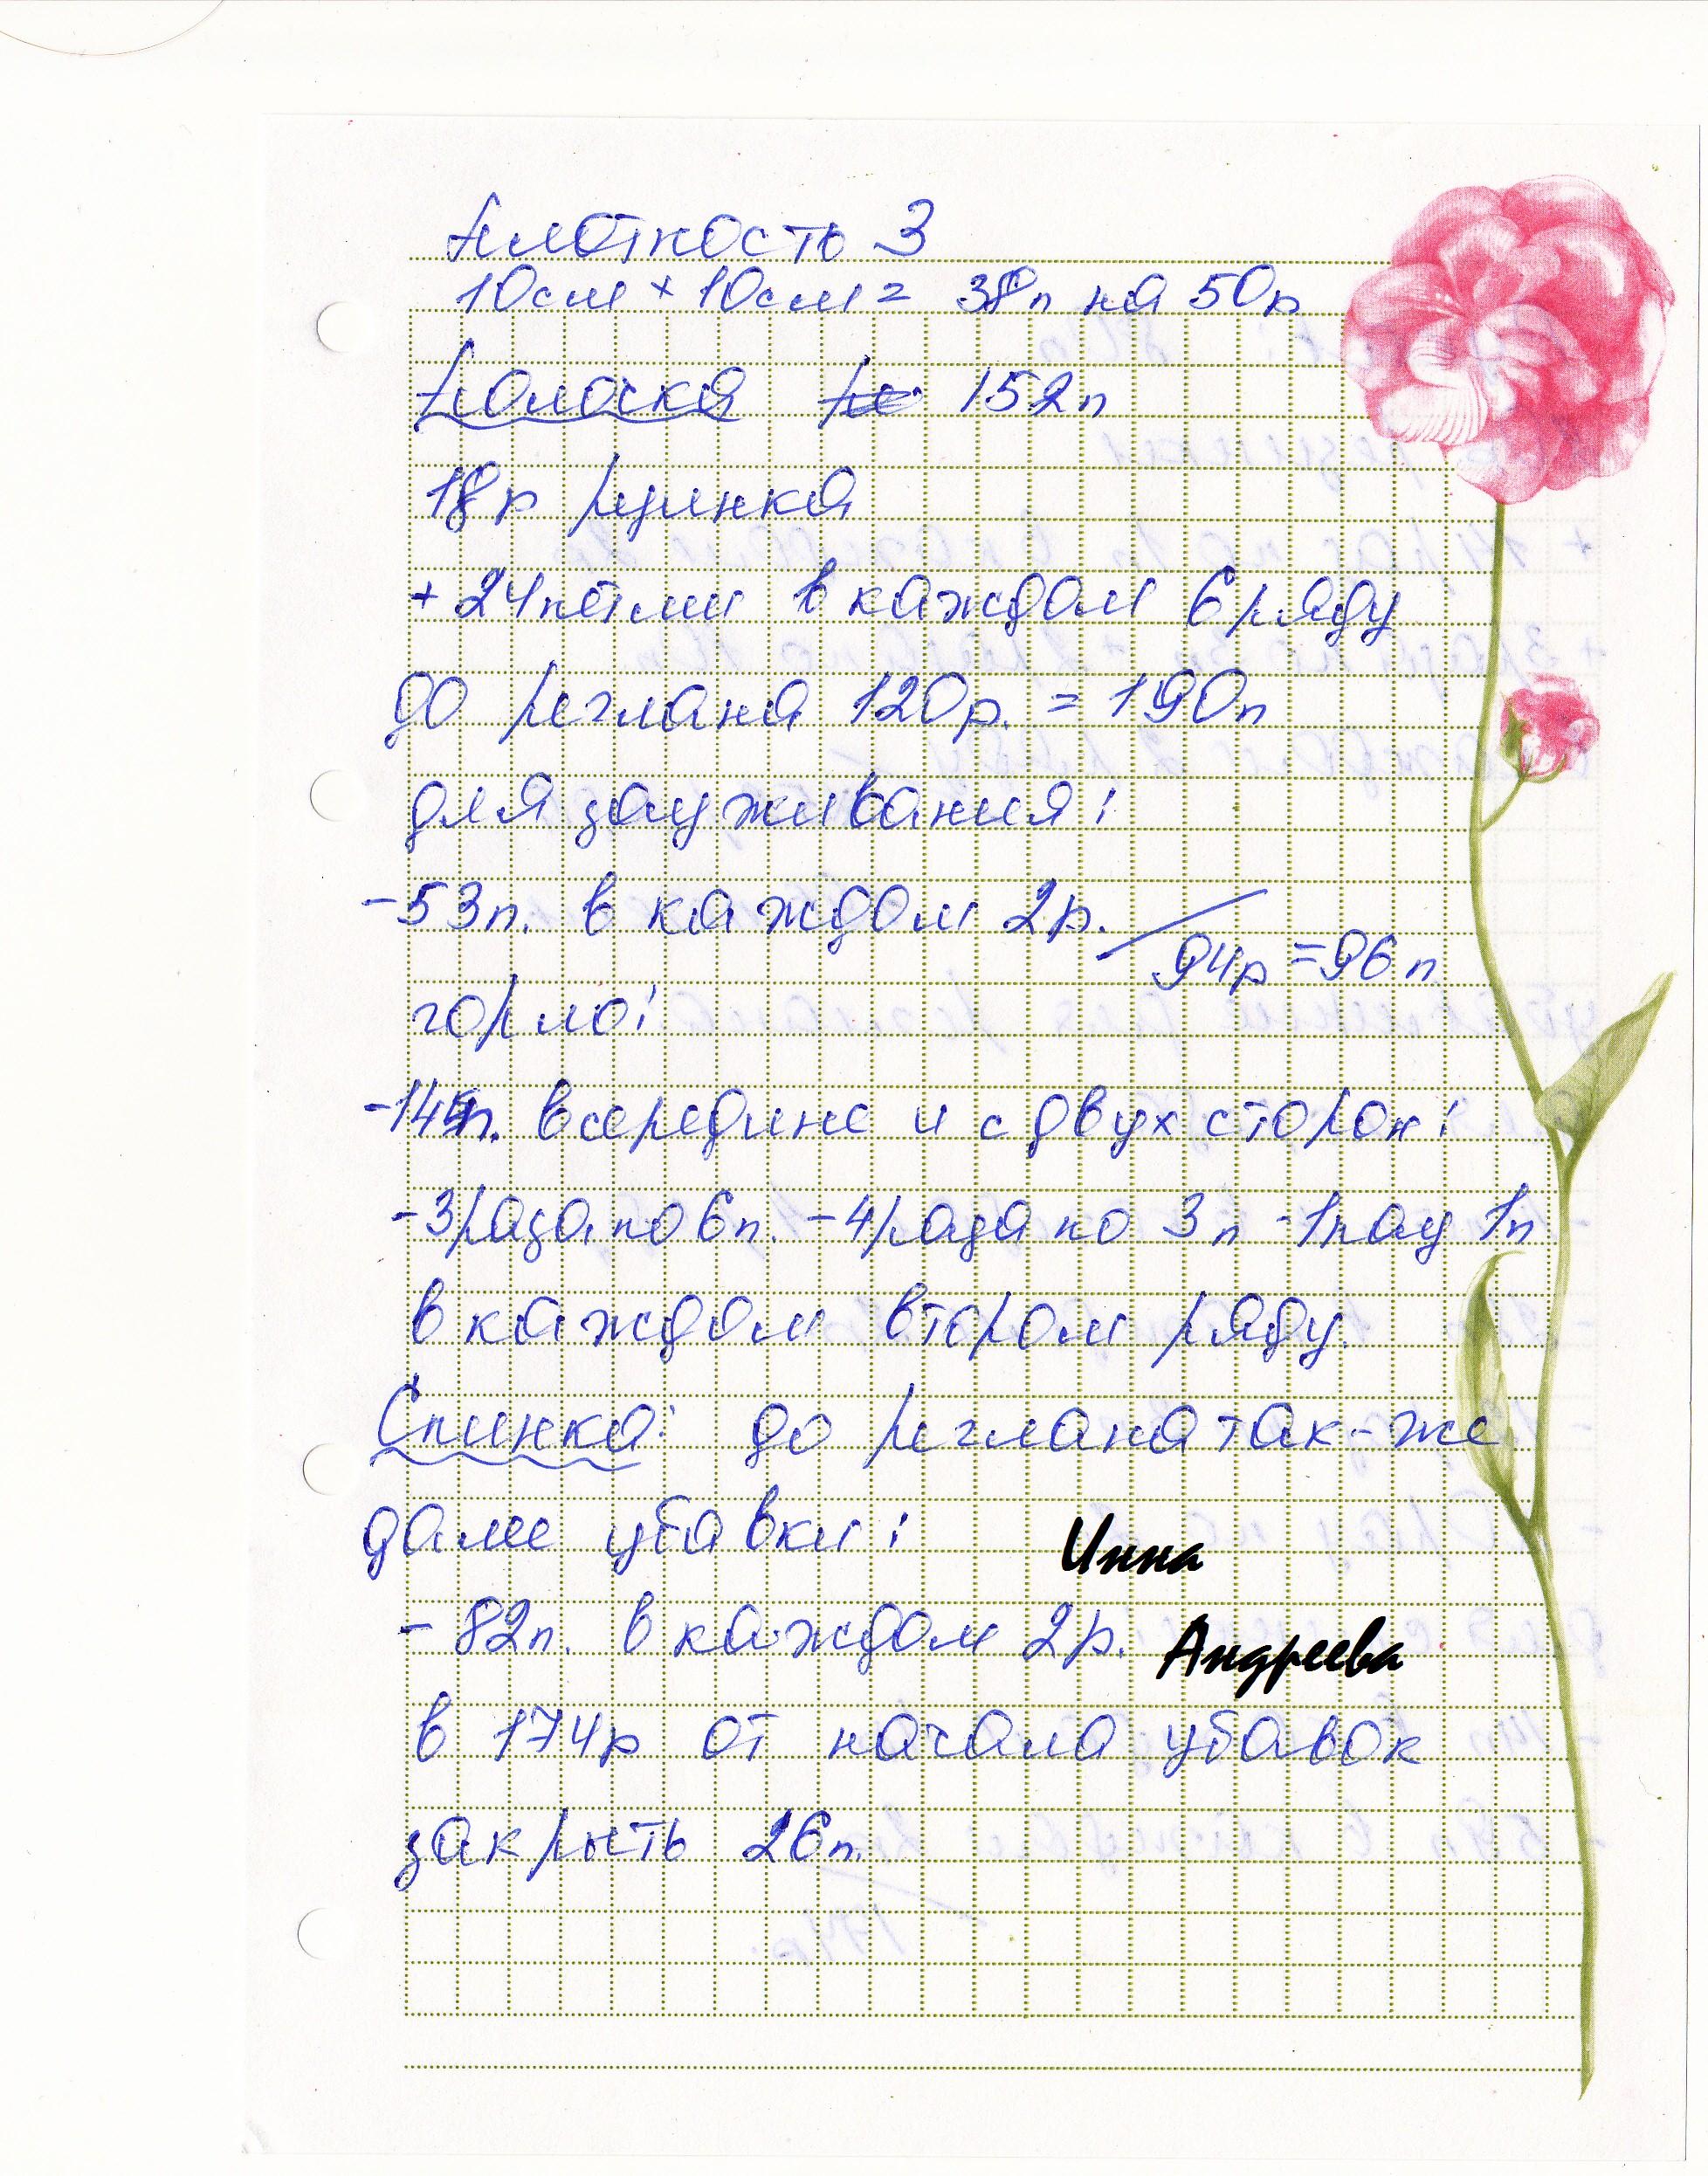 плотность 3
10см + 10см = 38п на 50р
полоска 152п
18р резинка
+ 24петли в каждом 6 ряду
до реглана 120р. = 190п
для зауживания:
-53п. в каждом 2р. 94р = 96п
горло:
-144п. в середине и с двух сторон:
-3 раза по 6п. -4 раза по 3п -1 раз 1п
в каждом втором ряду.
Спинка: до реглана так-же
далее убавки:
Инна
- 82п. в каждом 2р.
Андреева
в 174р от начала убавок
закрыть 26п.